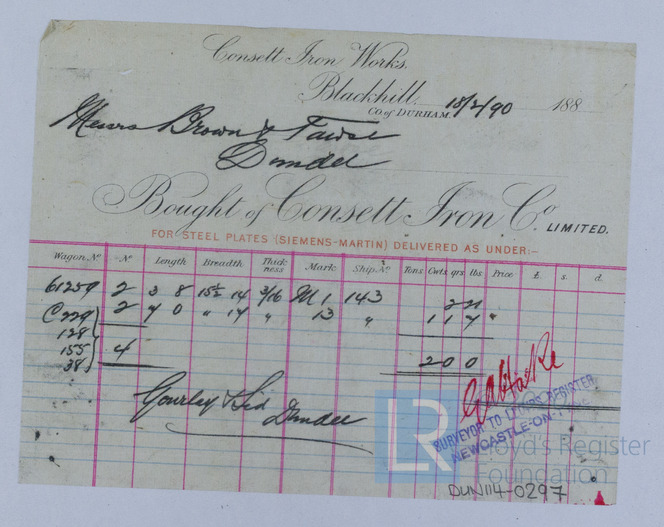 Consett Iron Works.
Blackhill. 18/2/90 188
CO. of DURHAM
Messrs Brown & Fawse
Dundee
Bought of Consett Iron Co. LIMITED.
FOR STEEL PLATES (SIEMENS-MARTIN) DELIVERED AS UNDER:-
Wagon No. No. Length Breadth Thickness Mark Ship No. Tons Cwts qrs lbs Price £. s. d.
61259 2 3 8 15½ 14 3/16 M 1 143 2 21
C 229 2 7 0 " 14 " 13 " 1 1 7 "
128
155 4
38 2 0 0
Gourley & Dundee
SURVEYOR TO LLOYDS REGISTER
NEWCASTLE-ON-TYNE
LR Lloyd's Register
Foundation
DUN114-0297